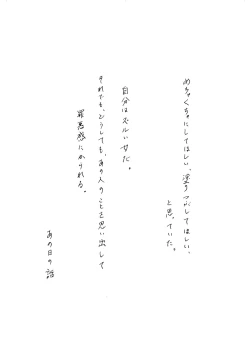 めちゃくちゃにしてほしい、塗りつぶしてほしい、
と思っていた。
自分はズルい女だ。
それでも、どうしても、あの人のことを思い出して
罪悪感にかられる。
あの日の話